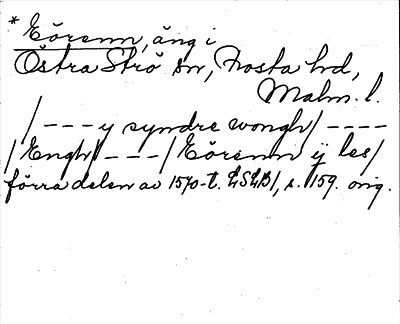 * Eörsnn, äng i
Östra Strö sn, Frosta hd,
Malm. l.
/---y syndre wongh/----
/Engh/---/Eörsnn ÿ les/
förra delen av 1570-t. LSLB/, s. 159. orig.